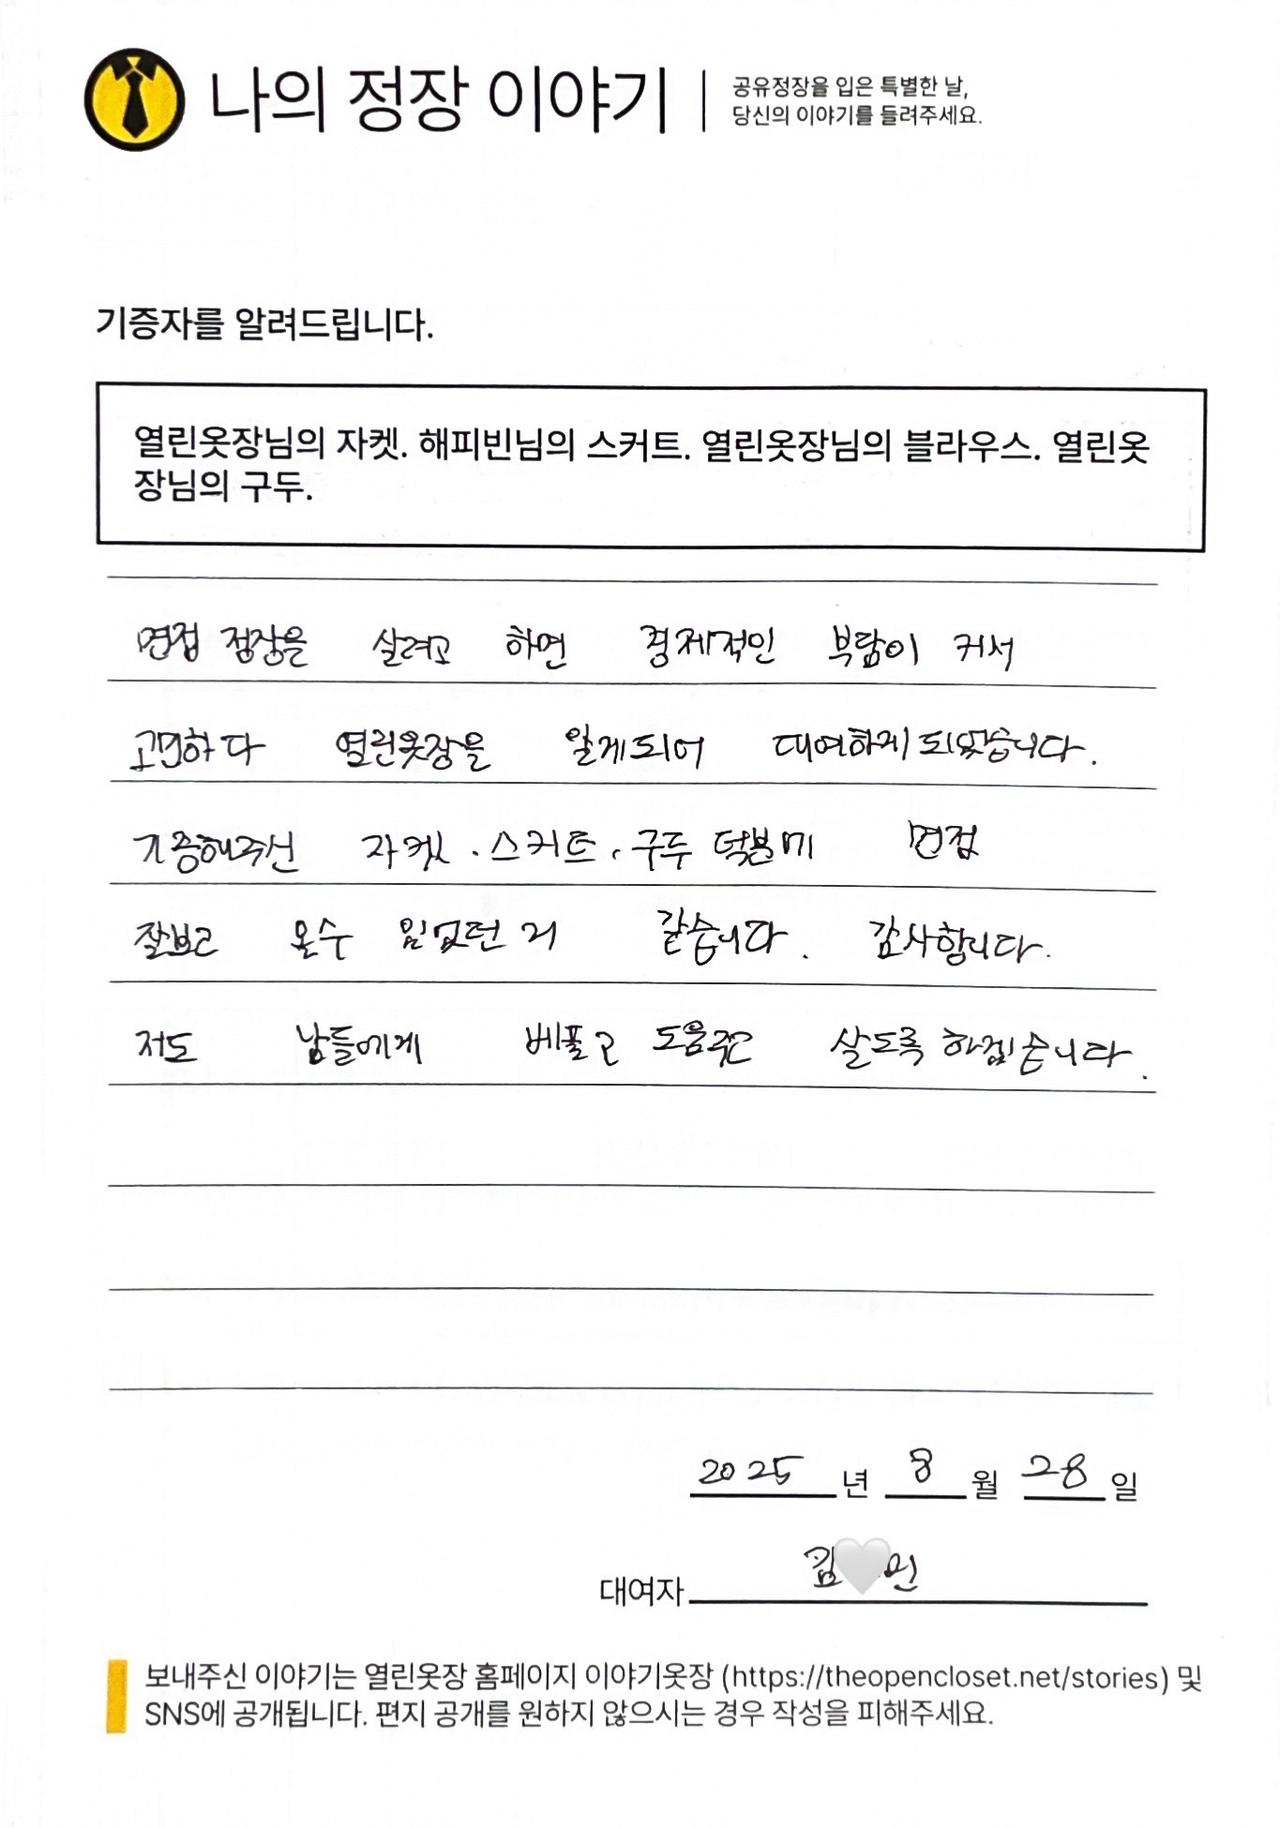 나의 정장 이야기
공유정장을 입은 특별한 날,
당신의 이야기를 들려주세요.
기증자를 알려드립니다.
열린옷장님의 자켓. 해피빈님의 스커트. 열린옷장님의 블라우스. 열린옷
장님의 구두.
면접 정장을 살려고 하면 경제적인 부담이 커서
고민하다 열린옷장을 알게되어 대여하게 되었습니다.
기증해주신 자켓. 스커트. 구두 덕분에 면접
잘보고 올수 있었던 거 같습니다. 감사합니다.
저도 남들에게 베풀고 도움주고 살도록 하겠습니다.
2025 년 8 월 28 일
대여자 김 인
보내주신 이야기는 열린옷장 홈페이지 이야기옷장 (https://theopencloset.net/stories) 및
SNS에 공개됩니다. 편지 공개를 원하지 않으시는 경우 작성을 피해주세요.